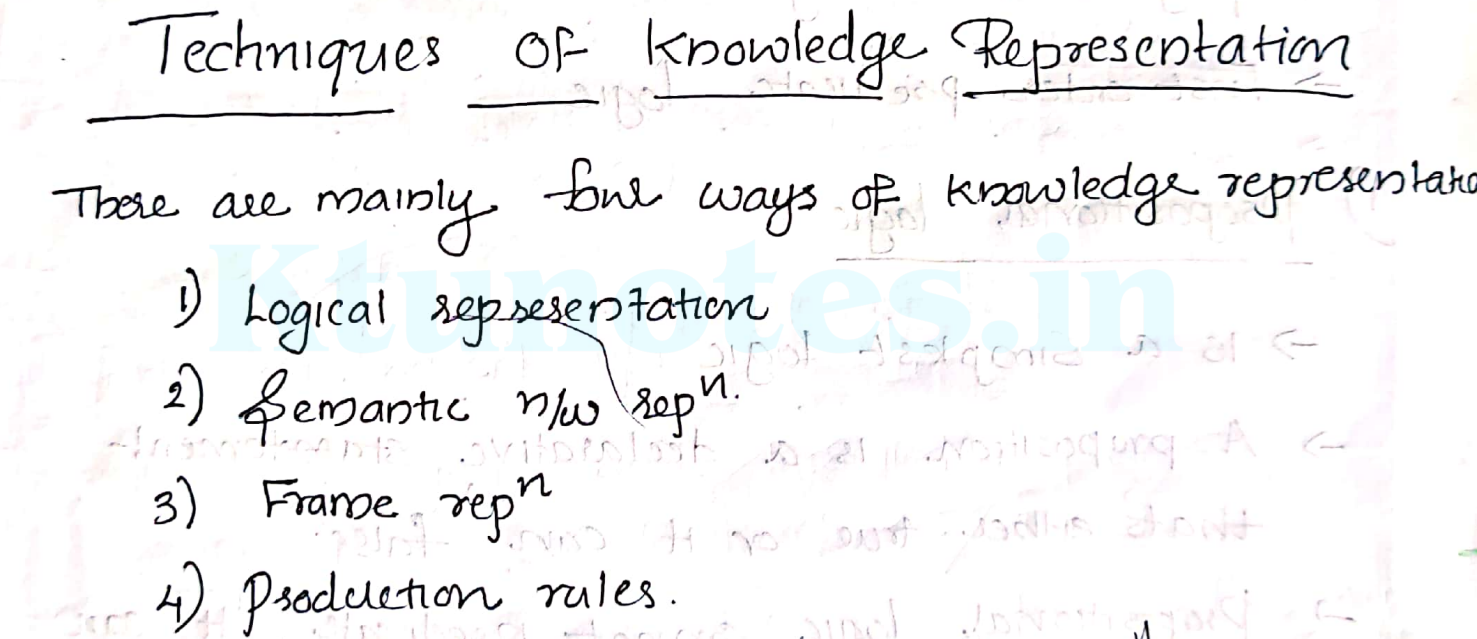 Techniques of Knowledge Representation
There are mainly four ways of knowledge representatio
1) Logical representation
2) Semantic n/w repn.
3) Frame repn
4) Production rules.
Ktunotes.in